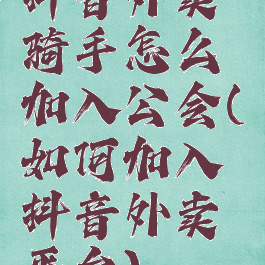 抖音外卖
骑手怎么
加入公会(
如何加入
抖音外卖
平台)